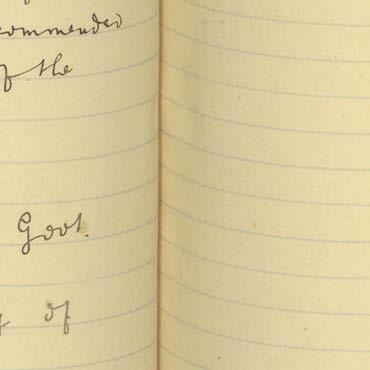 commended
of the
Govt.
of